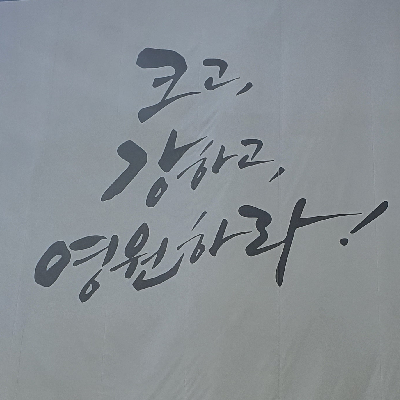 크고,
강하고,
영원하라!